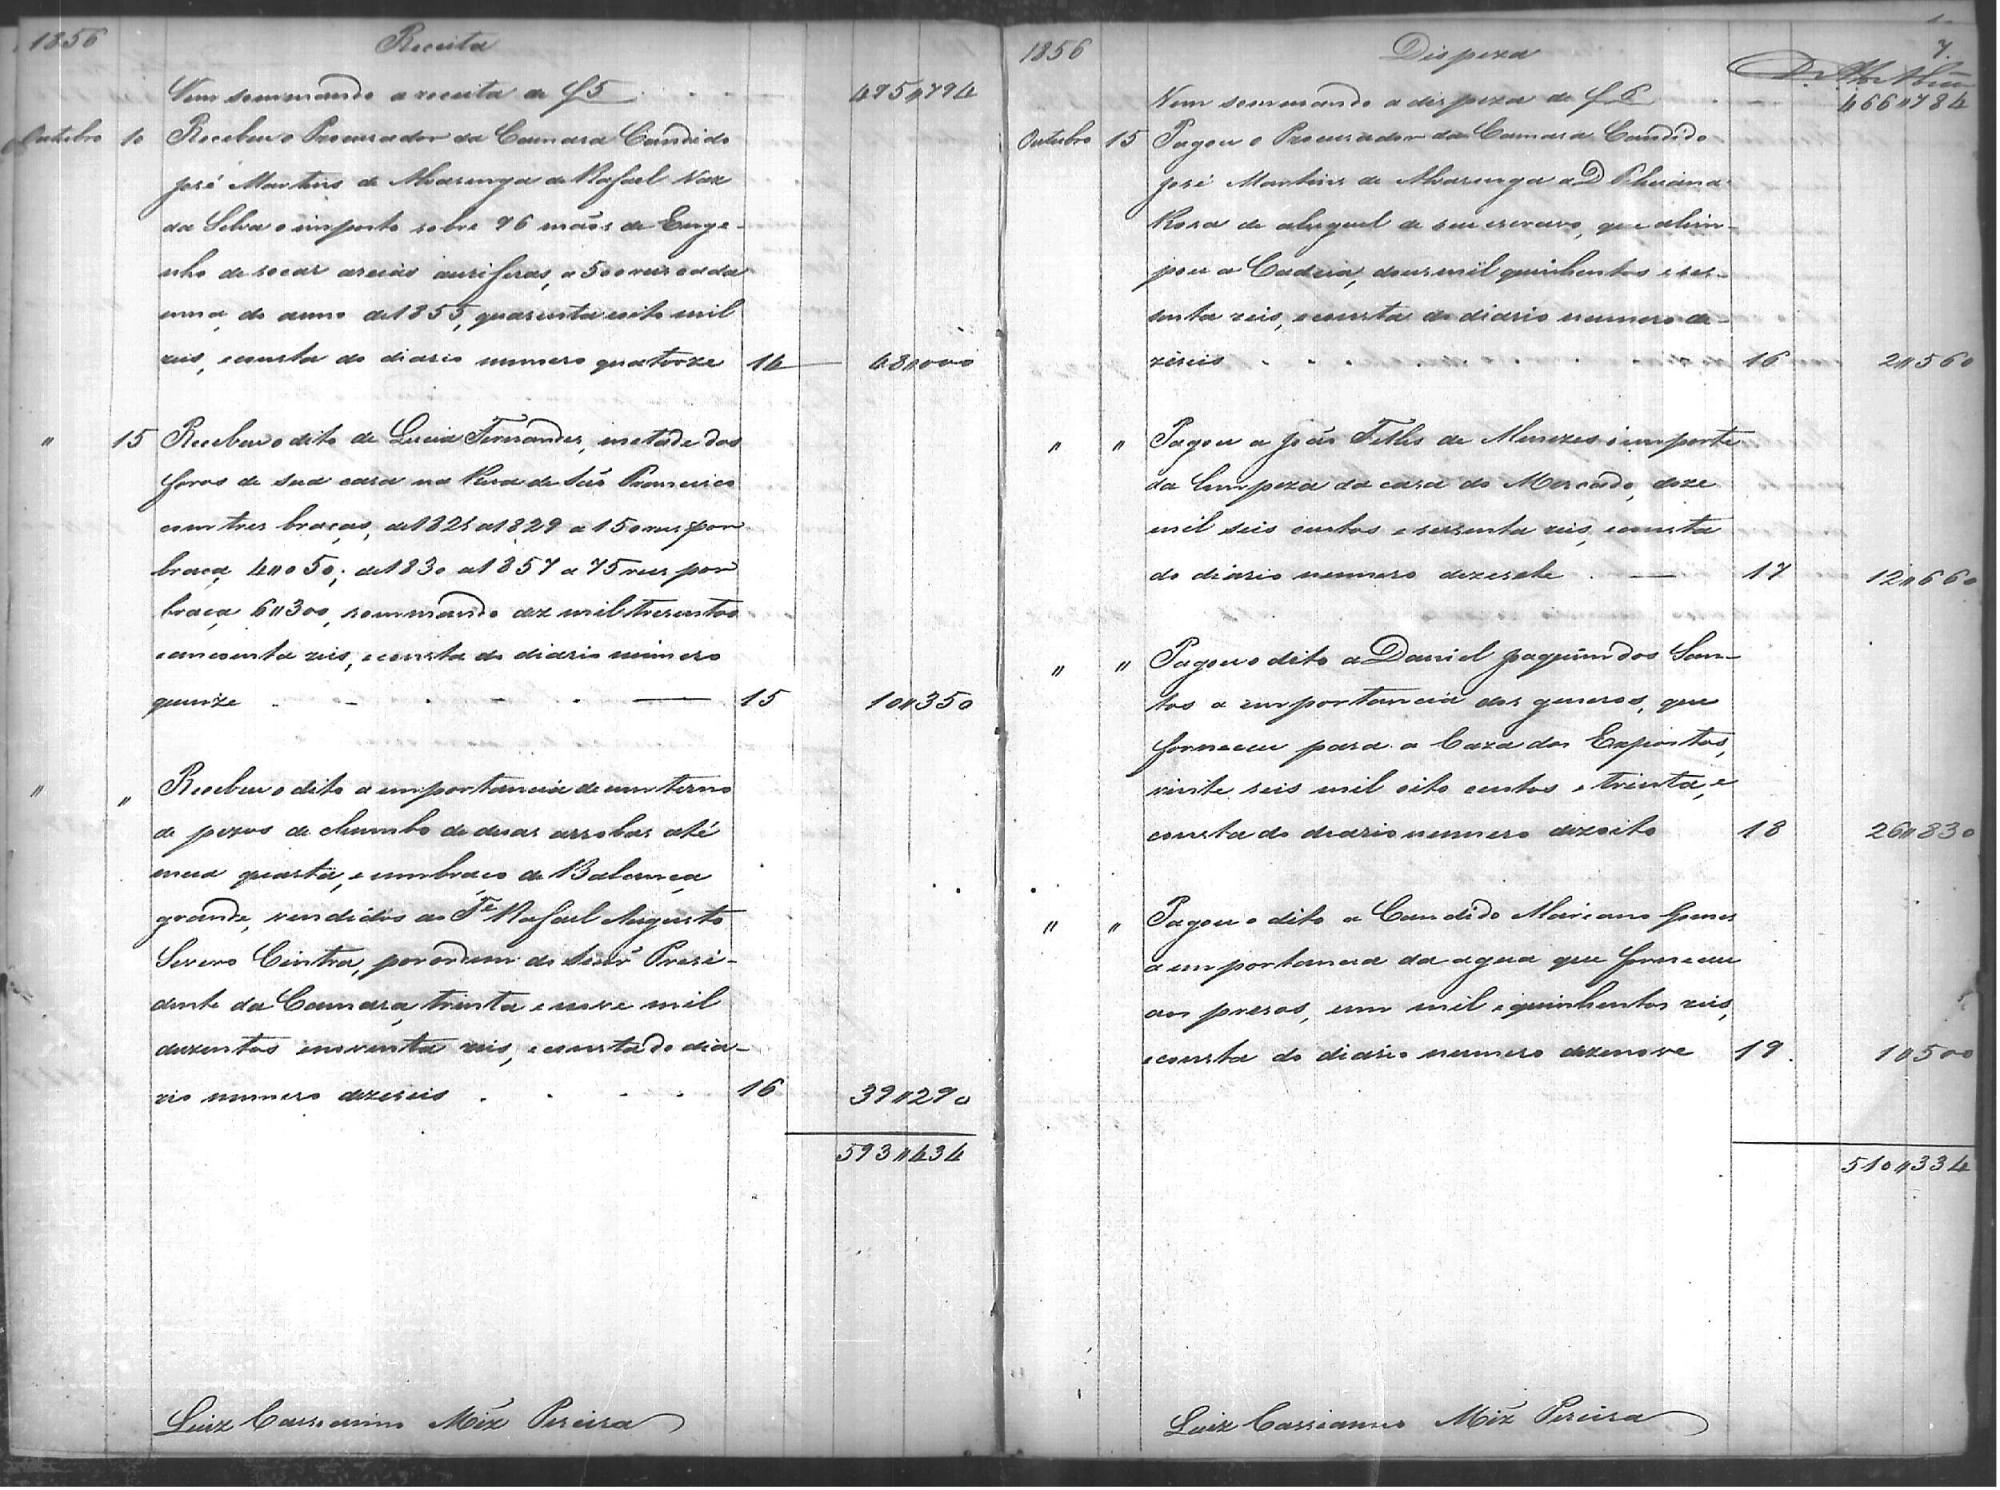 1856 Receita
Vem sommando a receita de f 5 495"794
Outubro 10 Recebeu o Procurador da Camara Candido
José Martins de Alvarenga de Rafael Vaz
da Silva o imposto sobre 96 mãos de Enge-
nho de socar areias auriferas, a 500 reis cada
uma, do anno de 1855, quarenta e oito mil
reis, e consta do diario numero quatorze 14 48"000
" 15 Recebeu o dito de Lucia Fernandes, metade dos
foros de sua casa na Rua de São Francisco
com tres braças, de 1821 a 1829 a 150 reis por
braça 4"050; de 1830 a 1857 a 75 reis por
braça 6"300, sommando dez mil tresentos
e cincoenta reis, e consta do diario número
quinze 15 10"350
" " Recebeu o dito a importancia de um terno
de pezos de chumbo de duas arrobas até
meia quarta, e um braço de Balança
grande, vendidos ao Te Rafael Augusto
Severo Cintra, por ordem do Senr Presi-
dente da Camara, trinta e nove mil
duzentos e noventa reis, e consta do dia-
rio numero dezeseis 16 39"290
593"434
Luiz Cassianno Miz Pereira
7.
1856 Dispeza
Vem sommando a dispeza de f 6 466"784
Outubro 15 Pagou o Procurador da Camara Candido
José Martins de Alvarenga a D
Rosa de aluguel de seu escravo, que alim-
pou a Cadeia, dous mil quinhentos e ses-
senta reis, e consta do diario numero de-
zeseis 16 2"560
" " Pagou a João Telles de Menezes o importe
da limpeza da casa do Mercado, doze
mil seis centos e sessenta reis, e consta
do diario numero dezesete 17 12"660
" " Pagou o dito a Daniel Joaquim dos San-
tos a importancia dos generos, que
forneceu para a Caza dos Expostos,
vinte seis mil oito centos e trinta, e
consta do diario numero dezoito 18 26"830
" " Pagou o dito a Candido Mariano Gomes
a importancia da agua que forneceu
aos presos, um mil e quinhentos reis,
e consta do diario numero dezenove 19 1"500
510"334
Luiz Cassianno Miz Pereira